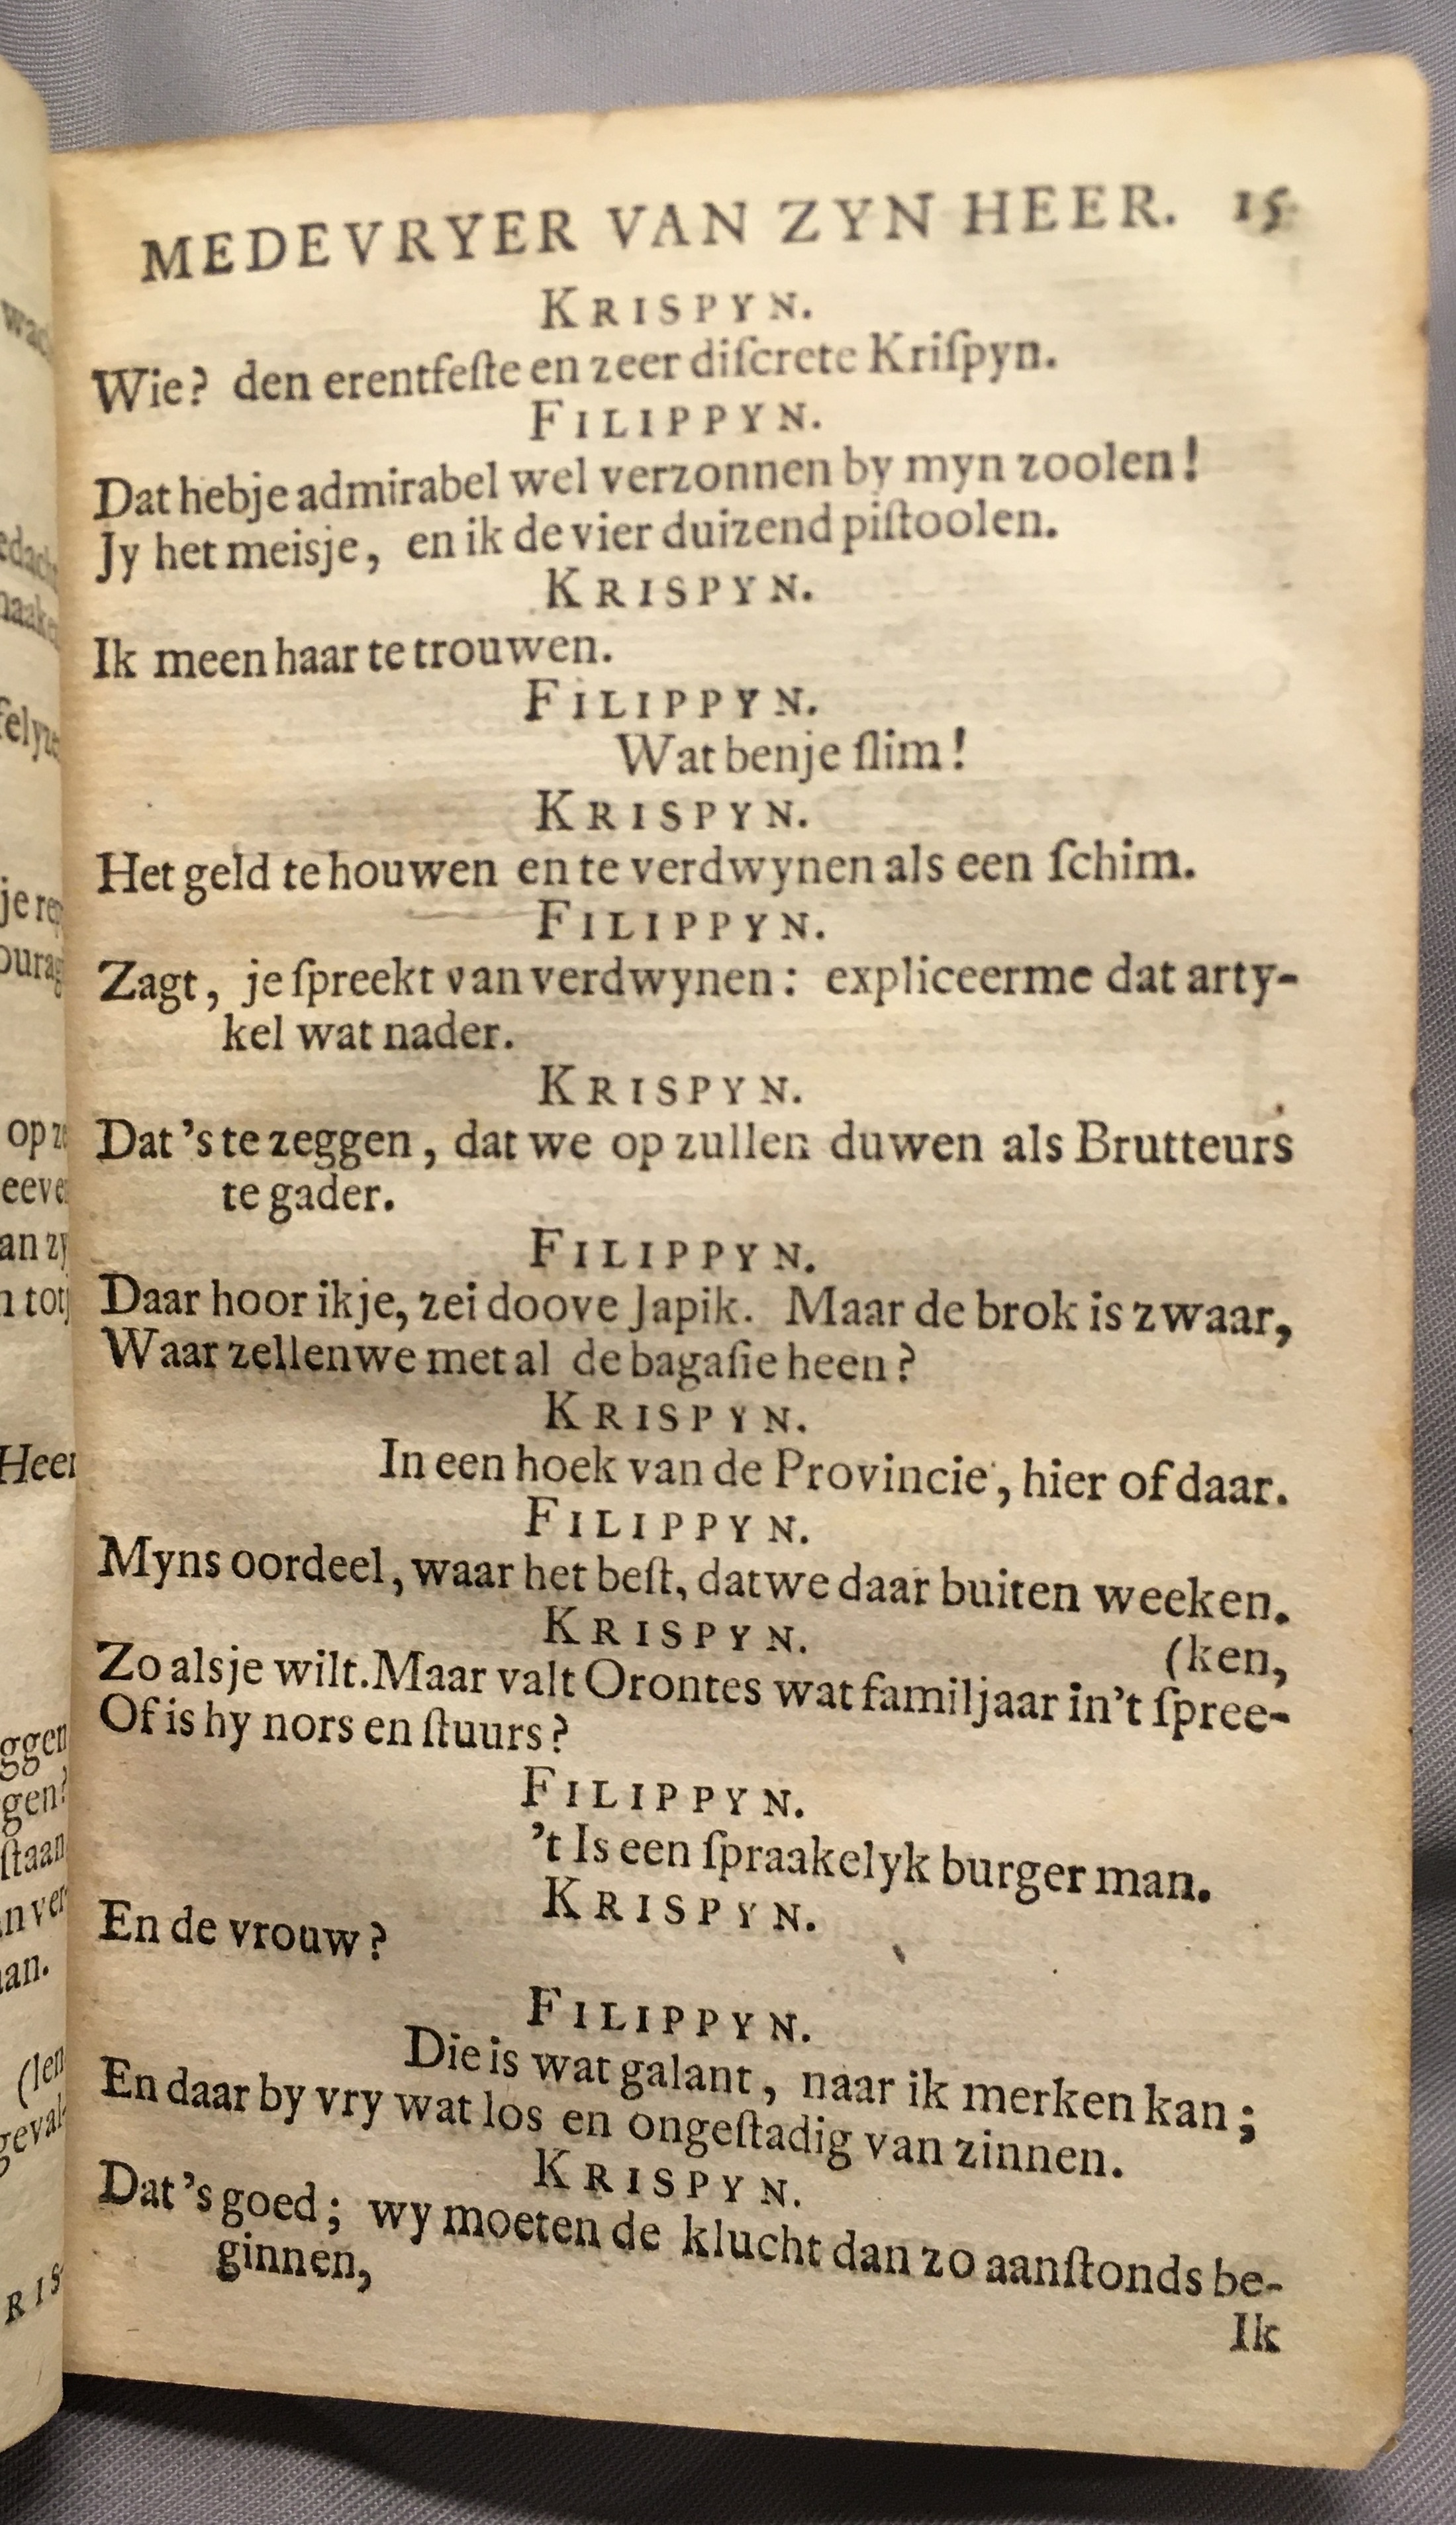 MEDEVRYER VAN ZYN HEER. 15
KRISPYN.
Wie? den erentfeſte en zeer diſcrete Kriſpyn.
FILIPPYN.
Dat hebje admirabel wel verzonnen by myn zoolen!
Jy het meisje, en ik de vier duizend piſtoolen.
KRISPYN.
Ik meen haar te trouwen.
FILIPPYN.
Wat benje ſlim!
KRISPYN.
Het geld te houwen en te verdwynen als een ſchim.
FILIPPYN.
Zagt, je ſpreekt van verdwynen: expliceerme dat arty-
kel wat nader.
KRISPYN.
Dat 's te zeggen, dat we op zullen duwen als Brutteurs
te gader.
FILIPPYN.
Daar hoor ikje, zei doove Japik. Maar de brok is zwaar,
Waar zellenwe met al de bagaſie heen?
KRISPYN.
In een hoek van de Provincie, hier of daar.
FILIPPYN.
Myns oordeel, waar het beſt, datwe daar buiten weeken.
KRISPYN. (ken,
Zo alsje wilt. Maar valt Orontes wat familjaar in't ſpree-
Of is hy nors en ſtuurs?
FILIPPYN.
't Is een ſpraakelyk burger man.
KRISPYN.
En de vrouw?
FILIPPYN.
Die is wat galant, naar ik merken kan;
En daar by vry wat los en ongeſtadig van zinnen.
KRISPYN.
Dat 's goed; wy moeten de klucht dan zo aanſtonds be-
ginnen,
Ik